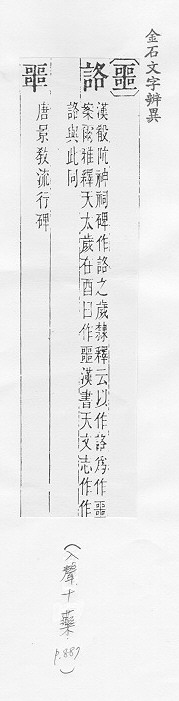 金石文字辨異
〔噩〕
詻 漢殽阬神祠碑作詻之歲隸釋云以作詻為作噩
案爾雅釋天太歲在酉曰作噩漢書天文志作作
詻與此同
噩 唐景教流行碑
(入聲十藥
p.887)